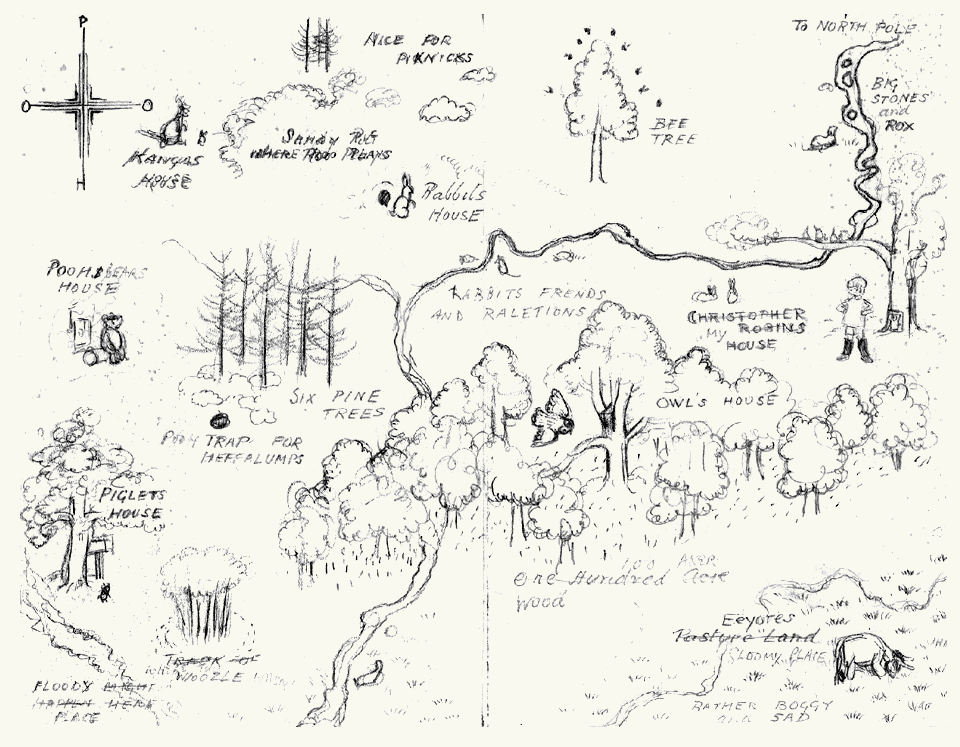 P
NICE FOR
PIKNICKS
To NORTH POLE
BIG
STONES
and
ROX
BEE
TREE
O
O
KANGAS
HOUSE
SANDY PIT
WHERE ROO PLAYS
H
Rabbits
HOUSE
POOH BEARS
HOUSE
RABBITS FRENDS
AND RALETIONS
CHRISTOPHER
MY ROBINS
HOUSE
SIX PINE
TREES
OWL'S HOUSE
POOH TRAP FOR
HEFFALUMPS
PIGLETS
HOUSE
100 AKER
One Hundred Acre
Wood
Eeyores
Pasture Land
GLOOMY PLACE
TRACK OF
WOOZLE
FLOODY MIGHT
HAPPEN HERE
PLACE
RATHER BOGGY
and SAD